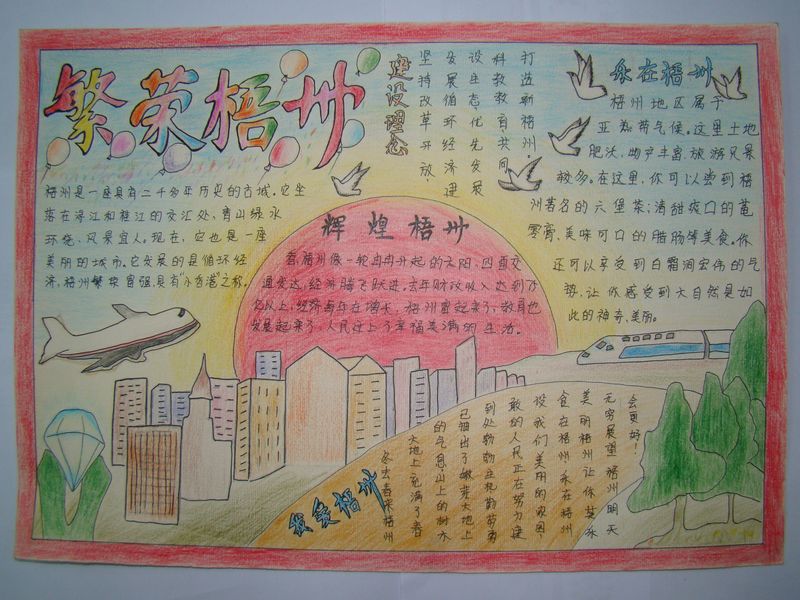 繁荣梧州
梧州是一座具有二千多年历史的古城。它坐
落在浔江和桂江的交汇处,青山绿水
环绕、风景宜人。现在,它也是一座
美丽的城市。它发展的是循环经
济,梧州繁荣富强,具有“小香港”之称。
建设理念
打造新梧州。
科教教育共同
设生态优先发展
发展循环经济建
坚持改革开放!
乐在梧州
梧州地区属于
亚热带气候。这里土地
肥沃,物产丰富,旅游风景
较多。在这里,你可以尝到梧
州著名的六堡茶;清甜爽口的龟
苓膏、美味可口的腊肠等美食。你
还可以享受到白霜涧宏伟的气
势,让你感受到大自然是如
此的神奇、美丽。
辉煌梧州
看,梧州像一轮冉冉升起的太阳,四面交
通发达,经济腾飞跃进,去年财政收入达到万
亿以上,经济每年在增长,梧州富起来了,教育也
发展起来了,人民过上了幸福美满的生活。
我爱梧州
冬去春来梧州
大地上充满了春
的气息山上的树木
已抽出了嫩芽大地上
到处物物生机勤劳勇
敢的人民正在努力建
设我们美丽的家园
食在梧州乐在梧州
美丽梧州让你梦乐
无穷展望梧州明天
会更好!